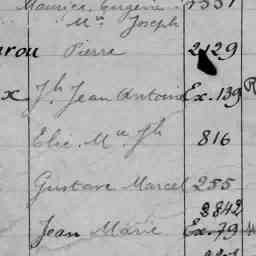 Maurice, Eugène 1551
Mie Joseph
arou Pierre 2129
x Jh Jean Antoine Ex. 139 R
Elie. Mie Jh 816
Gustave Marcel 255
2842
Jean Marie Ex. 79